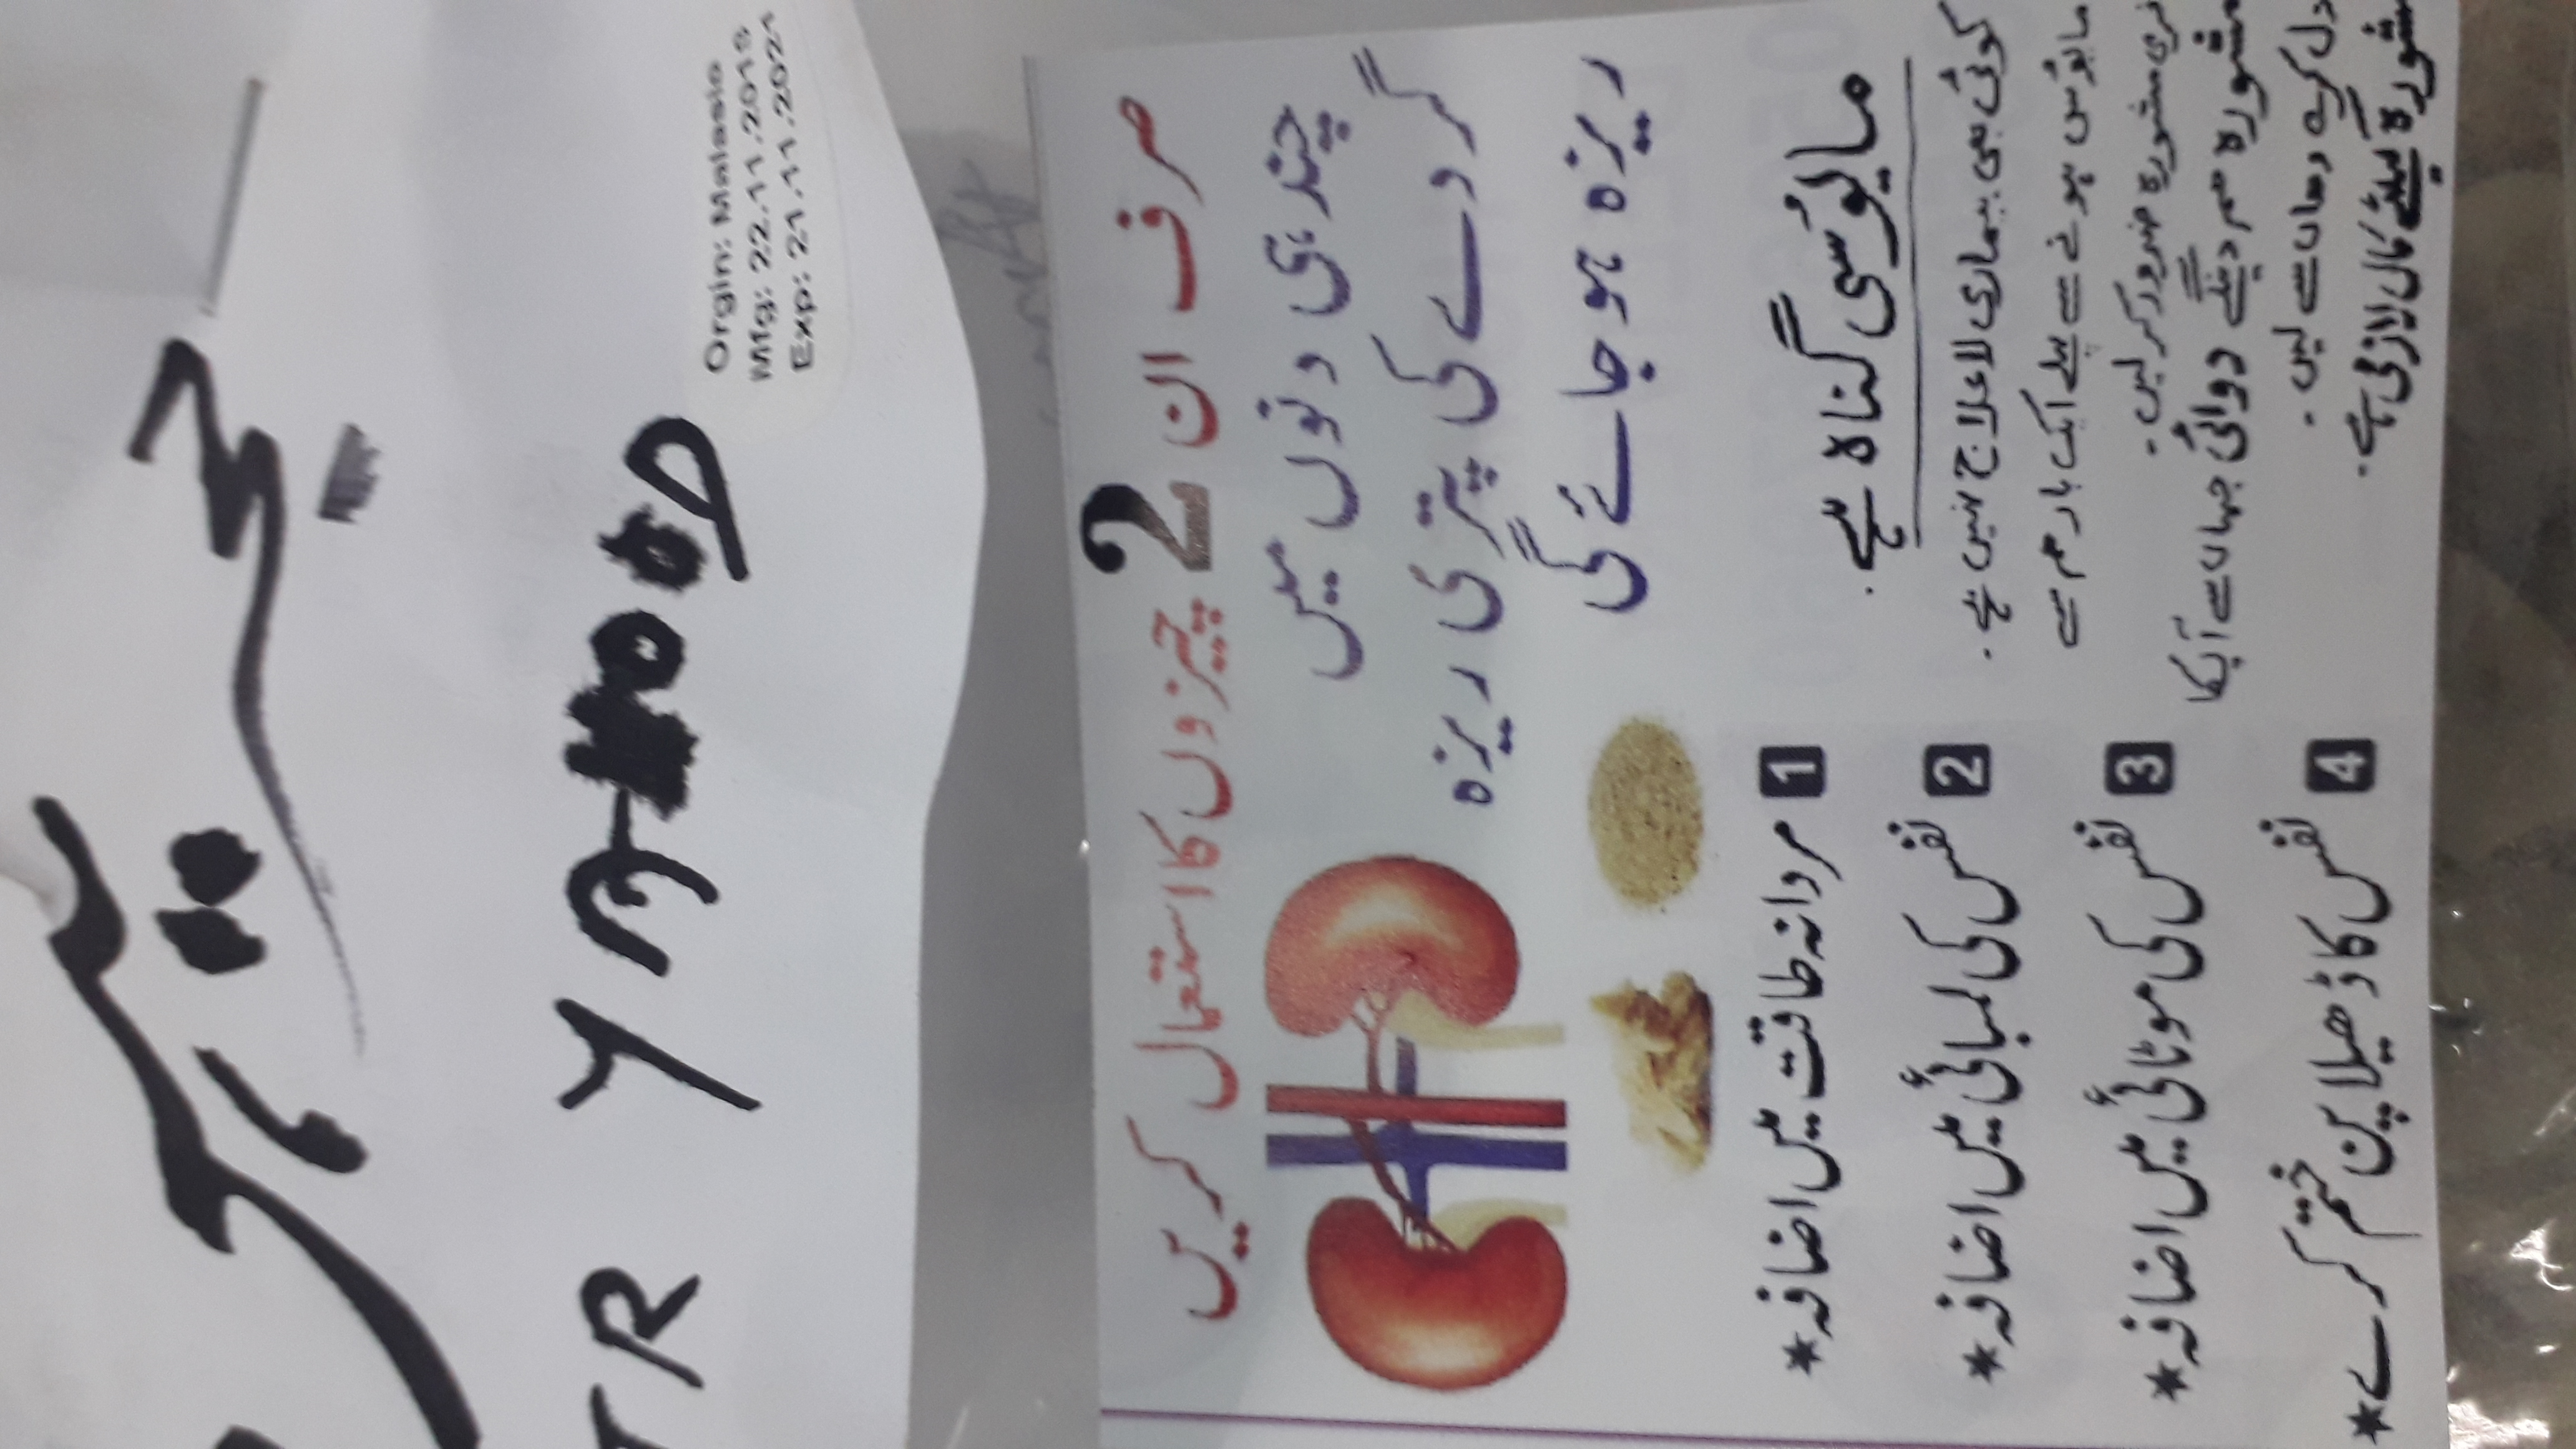 Orgin: Malasia
Mfg: 22.11.2018
Exp: 21.11.2021
صرف ان 2 چیزوں کا استعمال کریں
چند ہی دنوں میں
گردے کی پتری ریزہ
ریزہ ہو جائے گی
مایوُسی گناہ ہے۔
کوئی بھی بیماری لاعلاج نہیں ہے۔
مایوُس ہونے سے پہلے ایک بار ہم سے
فری مشورہ ضرور کر لیں۔
مشورہ ہم دینگے دوائی جہاں سے آپکا
دل کرے وہاں سے لیں۔
مشورہ کیلئے کال لازمی ہے۔
1 مردانہ طاقت میں اضافہ*
2 نفس کی لمبائی میں اضافہ*
3 نفس کی موٹائی میں اضافہ*
4 نفس کا ڈھیلا پن ختم کرے*